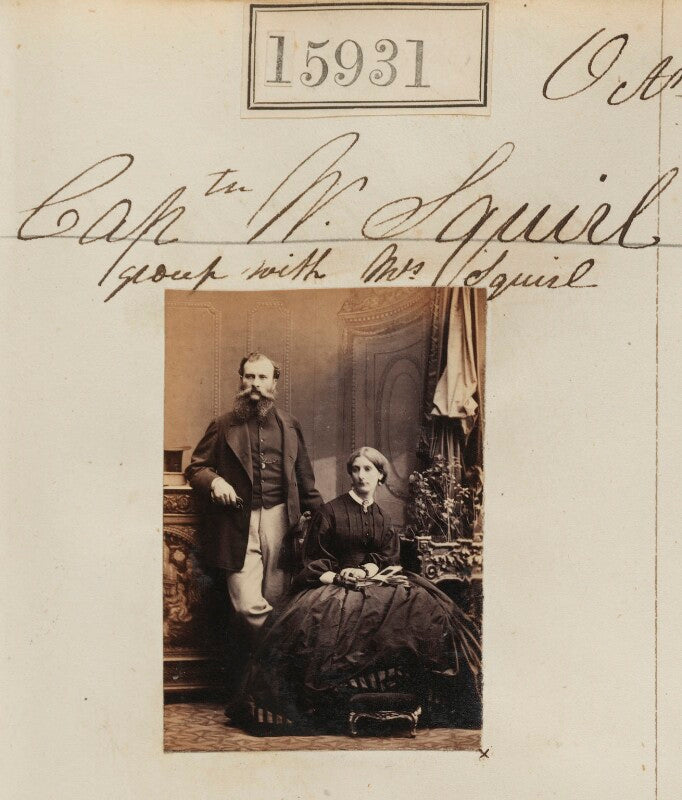 15931
Captn W. Squirl
group with Mrs Squirl
x